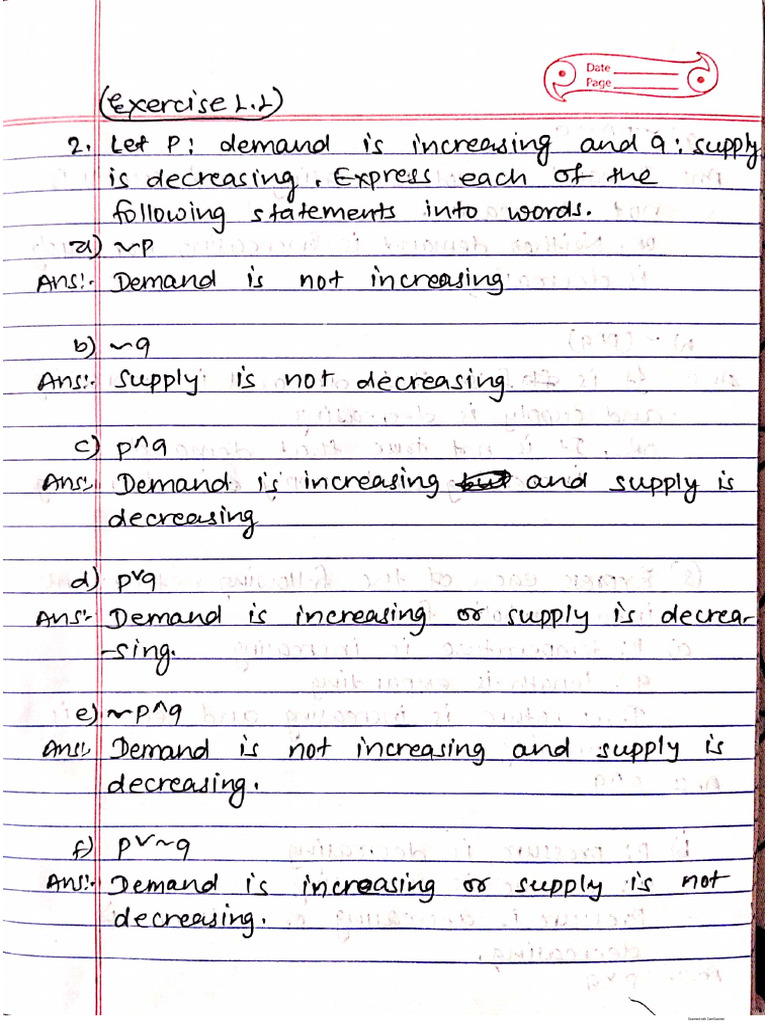 Date
Page
(Exercise 1.1)
2. Let P: demand is increasing and q: supply
is decreasing. Express each of the
following statements into words.
a) ~p
Ans:- Demand is not increasing
b) ~q
Ans:- Supply is not decreasing
c) p^q
Ans:- Demand is increasing and supply is
decreasing
d) p∨q
Ans:- Demand is increasing or supply is decrea-
-sing.
e) ~p^q
Ans:- Demand is not increasing and supply is
decreasing.
f) p∨~q
Ans:- Demand is increasing or supply is not
decreasing.
Scanned with CamScanner